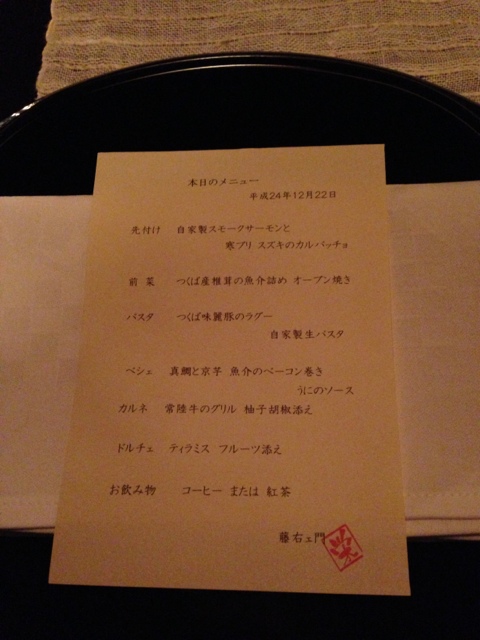 本日のメニュー
平成24年12月22日
先付け 自家製スモークサーモンと
寒ブリ スズキのカルパッチョ
前菜 つくば産椎茸の魚介詰め オーブン焼き
パスタ つくば味麗豚のラグー
自家製生パスタ
ペシェ 真鯛と京芋 魚介のベーコン巻き
うにのソース
カルネ 常陸牛のグリル 柚子胡椒添え
ドルチェ ティラミス フルーツ添え
お飲み物 コーヒー または 紅茶
藤右ェ門